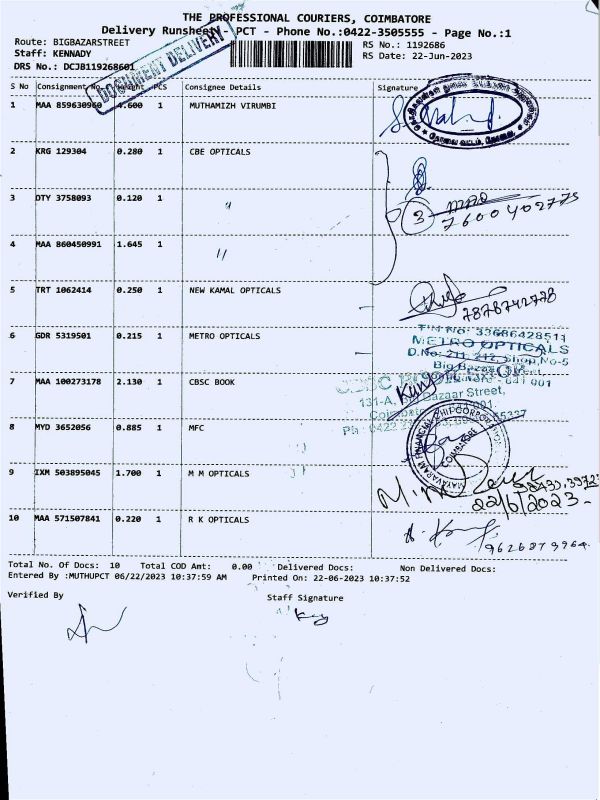 THE PROFESSIONAL COURIERS, COIMBATORE
Delivery Runsheet - PCT - Phone No.:0422-3505555 - Page No.:1
Route: BIGBAZARSTREET
RS No.: 1192686
Staff: KENNADY
RS Date: 22-Jun-2023
DRS No.: DCJB119268601
DOCUMENT DELIVERY
S No Consignment No. Weight PCS Consignee Details Signature
1 MAA 859630960 4.600 1 MUTHAMIZH VIRUMBI
2 KRG 129304 0.280 1 CBE OPTICALS
3 DTY 3758093 0.120 1 "
3
4 MAA 860450991 1.645 1 "
5 TRT 1062414 0.250 1 NEW KAMAL OPTICALS
7878742778
TIN No: 33686428511
6 GDR 5319501 0.215 1 METRO OPTICALS
METRO OPTICALS
D.No: 211, 212, Shop No-5
Big Bazaar Street,
7 MAA 100273178 2.130 1 CBSC BOOK
641 001
131-A, Big Bazaar Street,
8 MYD 3652056 0.885 1 MFC
COIMBATORE
9 IXM 503895045 1.700 1 M M OPTICALS
22/6/2023
10 MAA 571507841 0.220 1 R K OPTICALS
Total No. Of Docs: 10 Total COD Amt: 0.00 Delivered Docs: Non Delivered Docs:
Entered By :MUTHUPCT 06/22/2023 10:37:59 AM Printed On: 22-06-2023 10:37:52
Verified By
Staff Signature